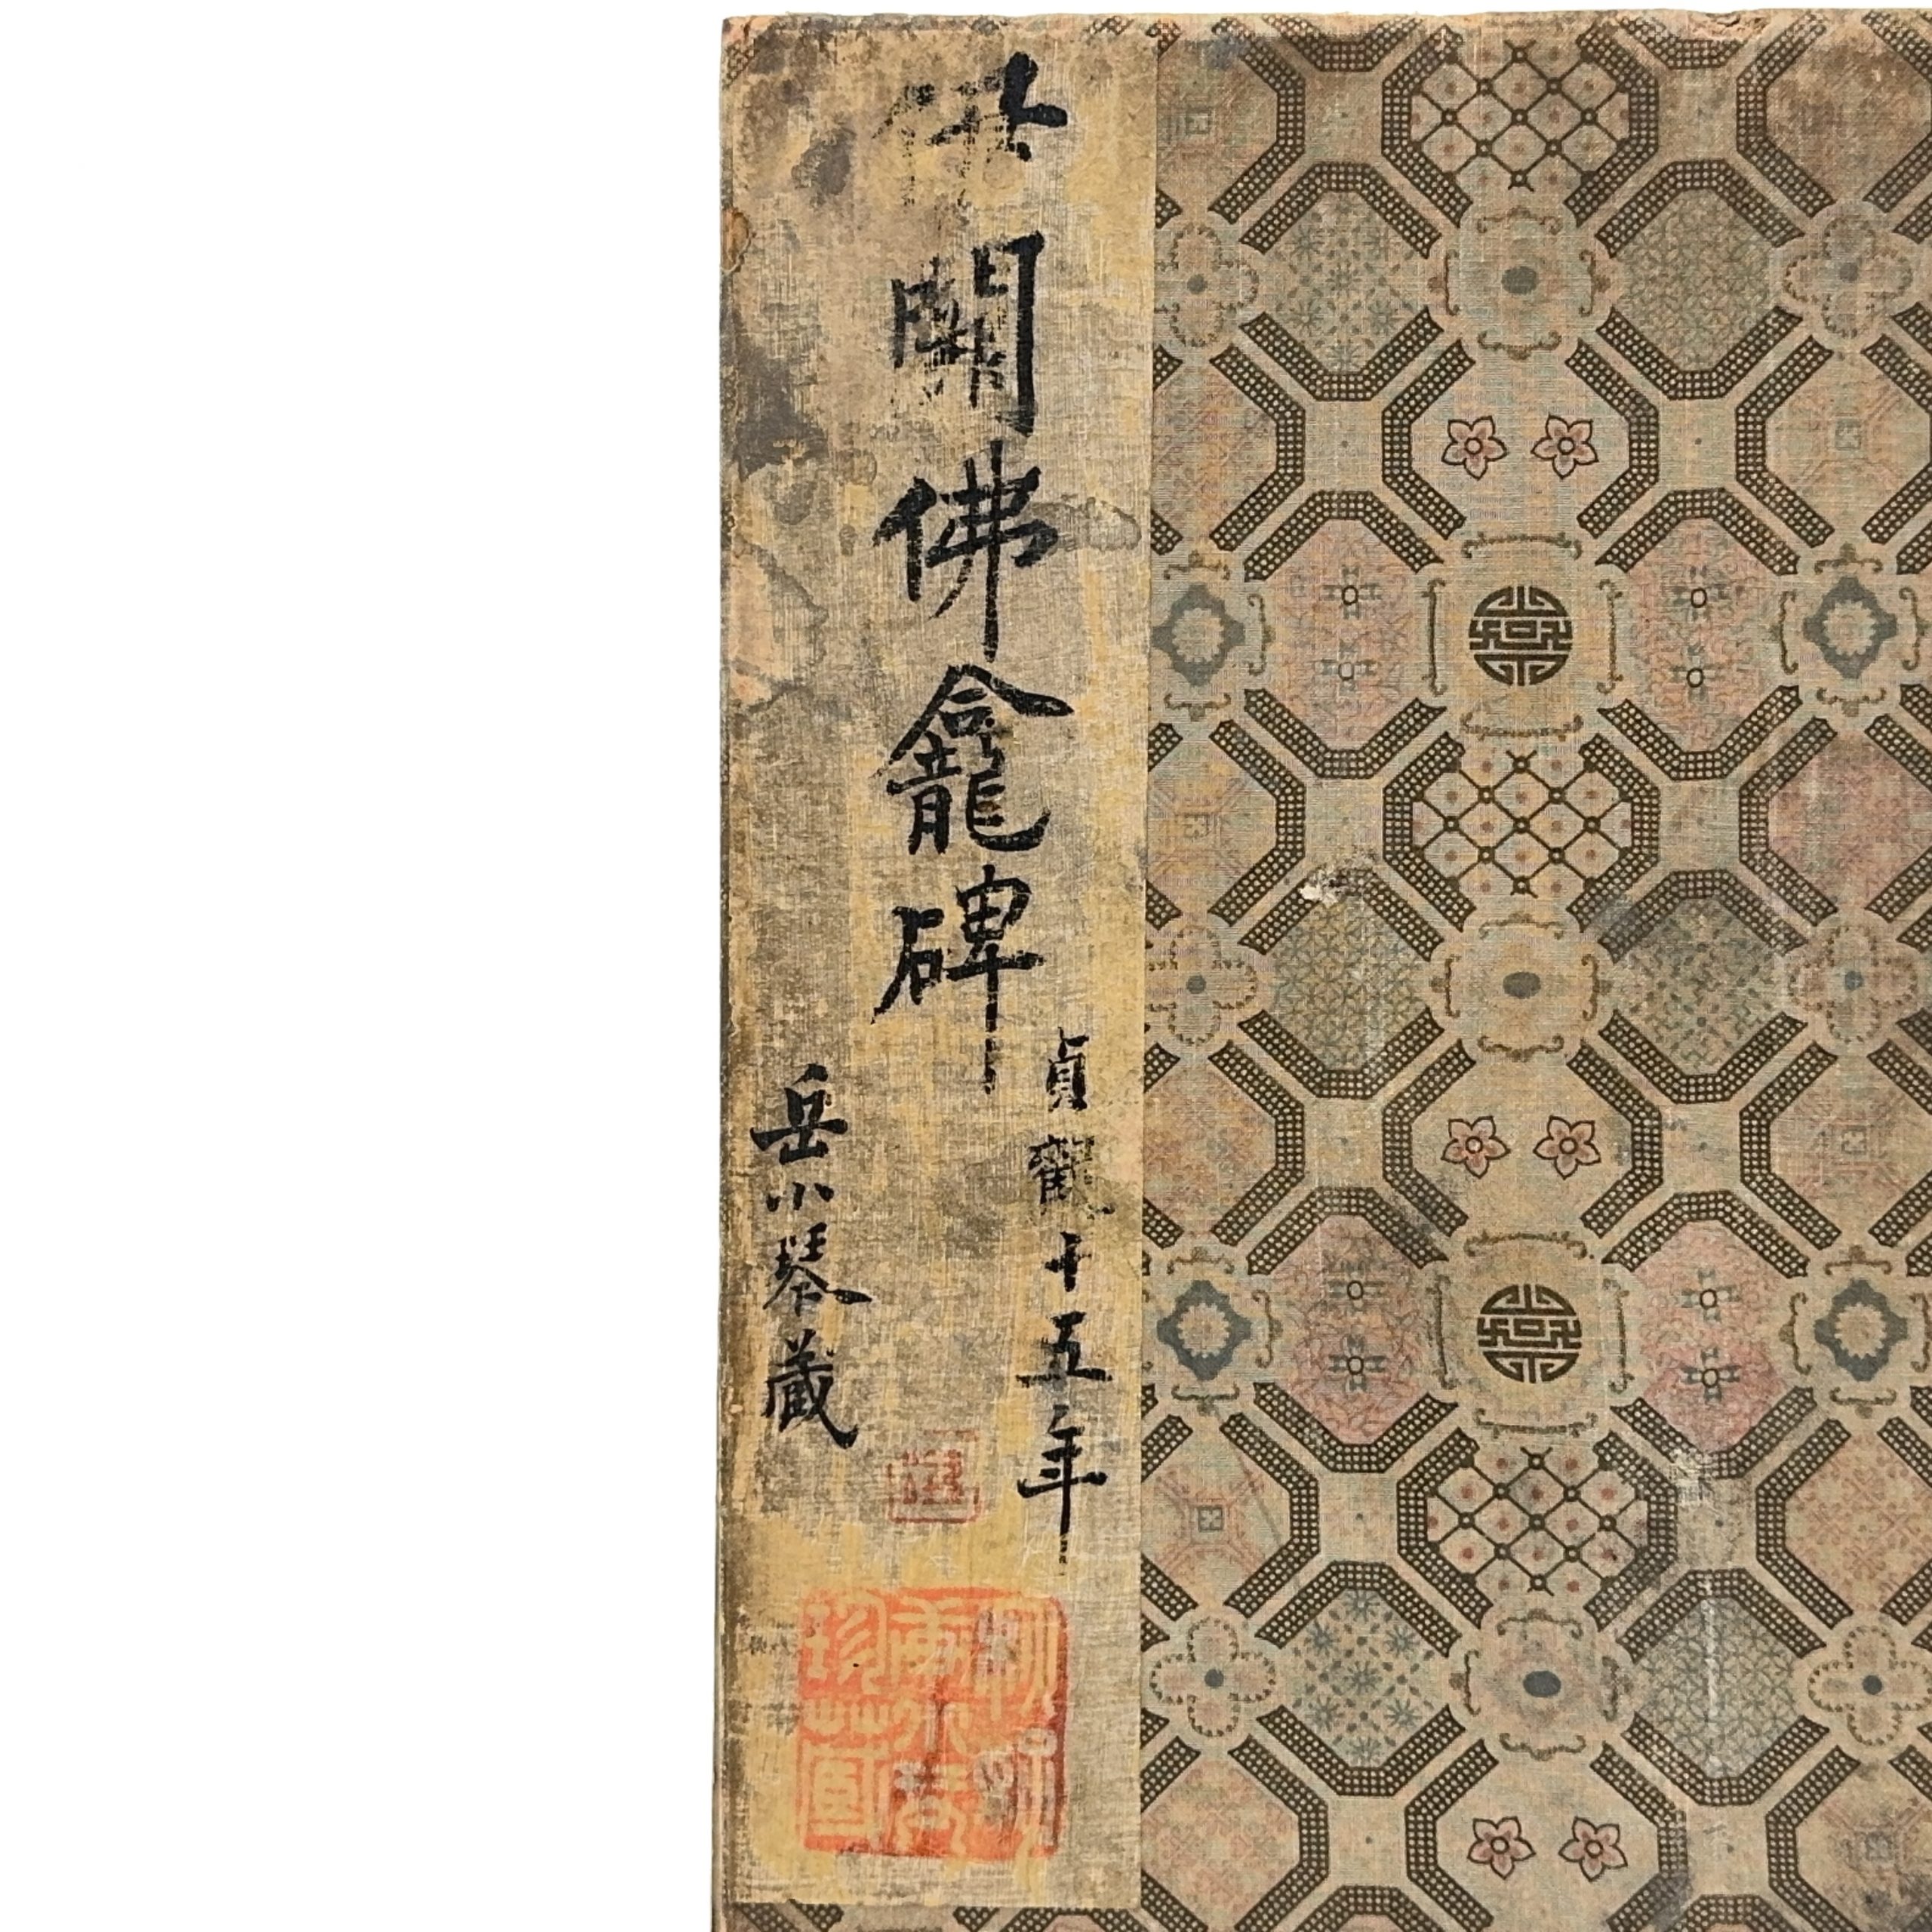 伊闕佛龕碑
貞觀十五年
岳小琴藏